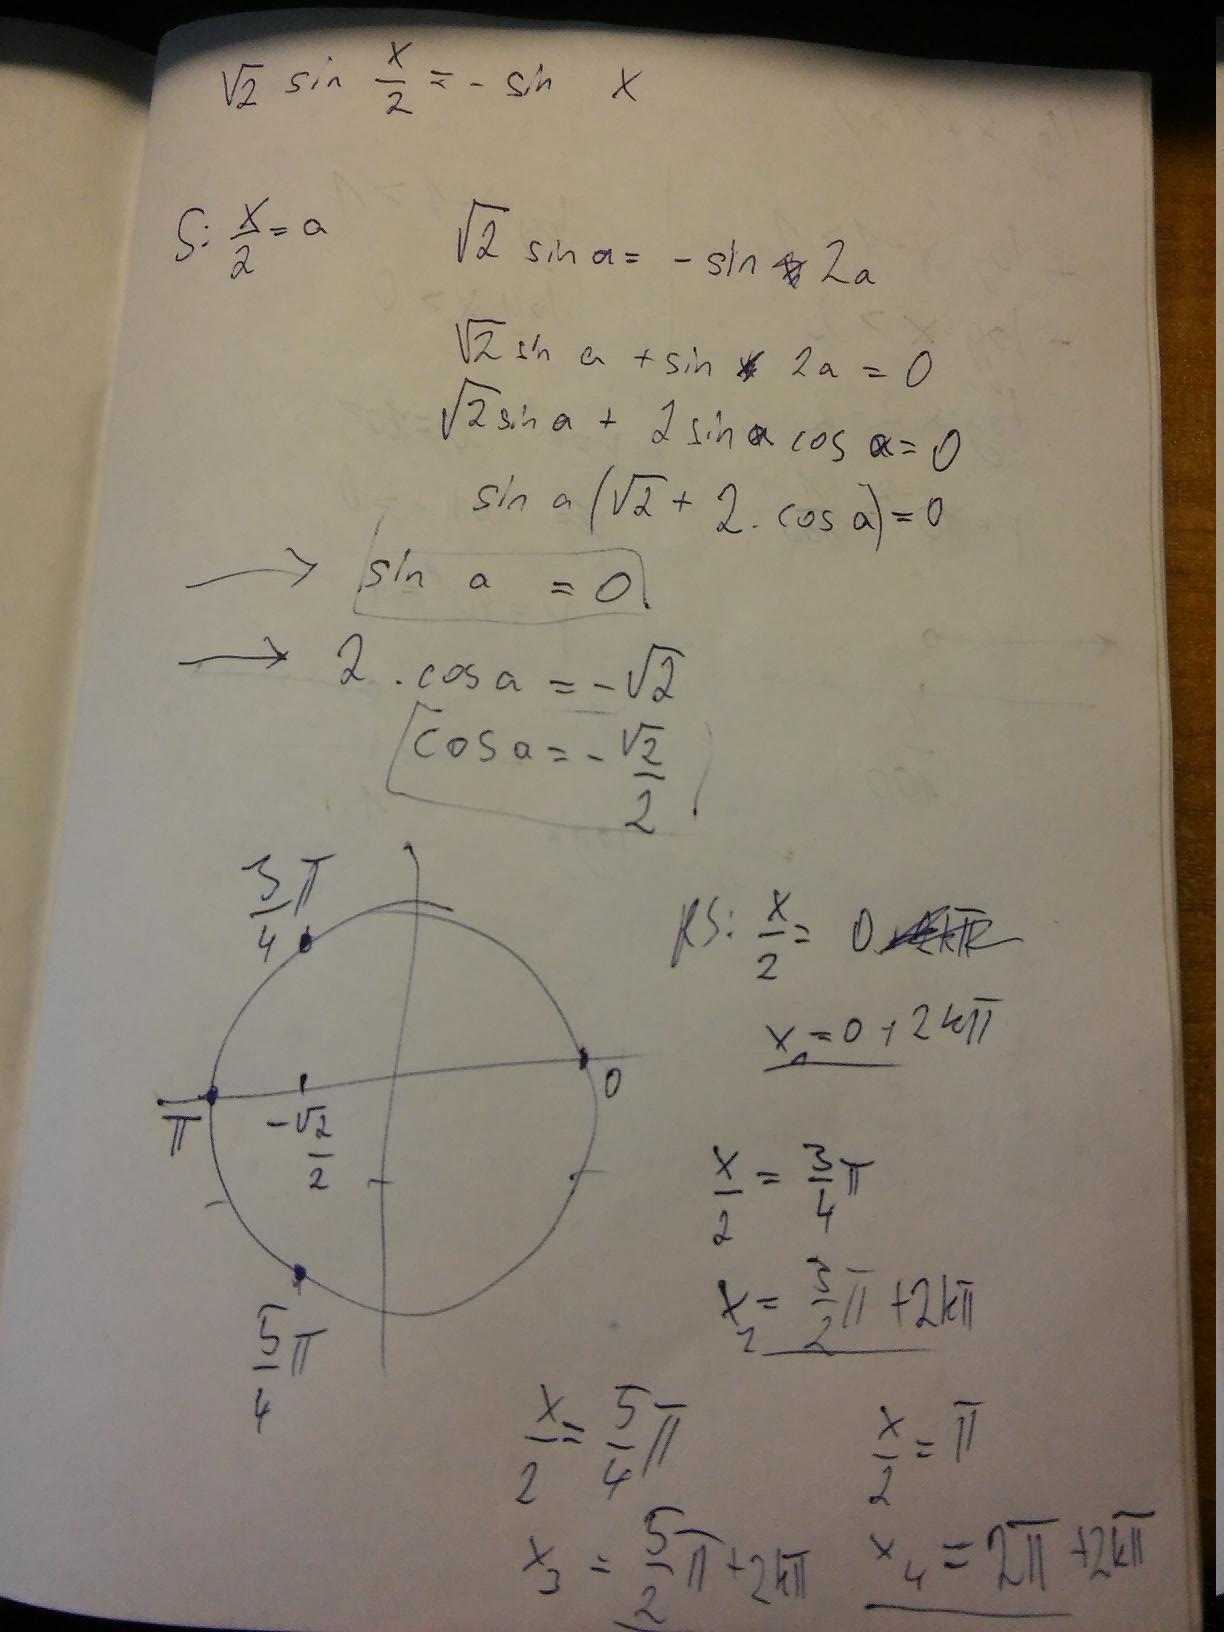 √2 sin x/2 = - sin x
S: x/2 = a
√2 sin a = - sin 2a
√2 sin a + sin 2a = 0
√2 sin a + 2 sin a cos a = 0
sin a (√2 + 2 . cos a) = 0
→ sin a = 0
→ 2 . cos a = -√2
cos a = - √2/2
3/4 π
π
-√2/2
0
5/4 π
RS: x/2 = 0
x₁ = 0 + 2kπ
x/2 = 3/4 π
x₂ = 3/2 π + 2kπ
x/2 = 5/4 π
x₃ = 5/2 π + 2kπ
x/2 = π
x₄ = 2π + 2kπ